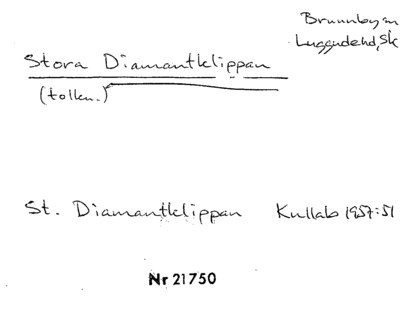 Brunnby sn
Luggudehd, Sk
Stora Diamantklippan
(tolkn.)
St. Diamantklippan Kullab 1957:51
Nr 21750